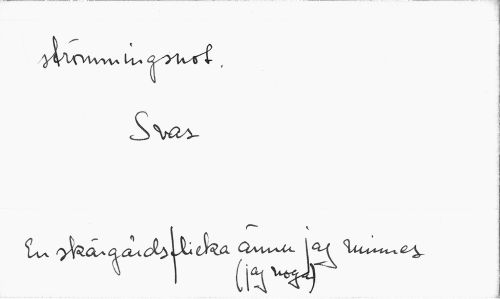 strömmingsnot.
Svas
En skärgårdsflicka ännu jag minnes
(jag noga)